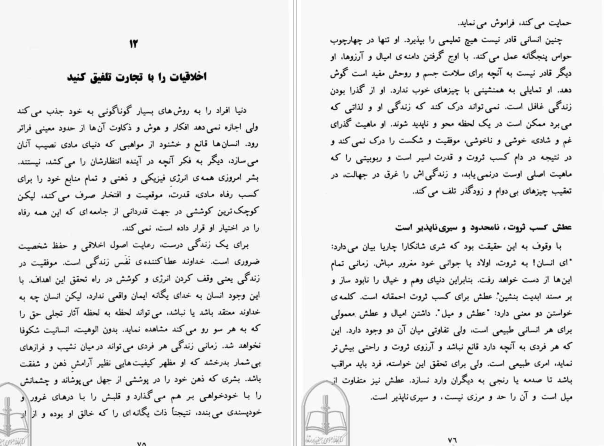 ۱۲
اخلاقیات را با تجارت تلفیق کنید
دنیا افراد را به روش‌های بسیار گوناگونی به خود جذب می‌کند
ولی اجازه نمی‌دهد افکار و هوش و ذکاوت آن‌ها از حدود معینی فراتر
رود. انسان‌ها قانع و خشنود از مواهبی که دنیای مادی نصیب آنان
می‌سازد، دیگر به فکر آنچه در آینده انتظارشان را می‌کشد، نیستند.
بشر امروزی همه‌ی انرژی فیزیکی و ذهنی و تمام منابع خود را برای
کسب رفاه مادی، قدرت، موقعیت و افتخار صرف می‌کند، لیکن
کوچک‌ترین کوششی در جهت قدردانی از جامعه‌ای که این همه رفاه
را در اختیار او قرار داده است، نمی‌کند.
برای یک زندگی درست، رعایت اصول اخلاقی و حفظ شخصیت
ضروری است. خداوند عطاکننده‌ی نَفَس زندگی است. موفقیت در
زندگی یعنی وقف کردن انرژی و کوشش در راه تحقق این اهداف. با
این وجود انسان به خدای یگانه ایمان واقعی ندارد، لیکن انسان چه به
خداوند معتقد باشد یا نباشد، می‌تواند لحظه به لحظه آثار تجلی حق را
به هر سو رو می‌کند مشاهده نماید. بدون الوهیت، انسانیت شکوفا
نخواهد شد. زمانی زندگی هر فردی می‌تواند درمیان نشیب و فرازهای
بی‌شمار بدرخشد که او مظهر کیفیت‌هایی نظیر آرامش ذهن و شفقت
باشد. بشری که ذهن خود را در پوششی از جهل می‌پوشاند و چشمانش
را با خودخواهی بر هم می‌گذارد و قلبش را با درهای غرور و
خودپسندی می‌بندد، نتیجتاً ذات یگانه‌ای را که خالق او بوده و از او
۷۵
حمایت می‌کند، فراموش می‌نماید.
چنین انسانی قادر نیست هیچ تعلیمی را بپذیرد. او تنها در چهارچوب
حواس پنجگانه عمل می‌کند. با اوج گرفتن دامنه‌ی امیال و آرزوها، او
دیگر قادر نیست به آنچه برای سلامت جسم و روحش مفید است گوش
دهد. او تمایلی به همنشینی با چیزهای خوب ندارد. او از گذرا بودن
زندگی غافل است. نمی‌تواند درک کند که زندگی او و لذاتی که
می‌برد ممکن است در یک لحظه محو و ناپدید شوند. او ماهیت گذرای
غم و شادی، خوشی و ناخوشی، موفقیت و شکست را درک نمی‌کند و
در نتیجه در دام کسب ثروت و قدرت اسیر است و ربوبیتی را که
ماهیت اصلی اوست درنمی‌یابد، و زندگی‌اش را غرق در جهالت، در
تعقیب چیزهای بی‌دوام و زودگذر تلف می‌کند.
عطش کسب ثروت، نامحدود و سیری‌ناپذیر است
با وقوف به این حقیقت بود که شری شانکارا چاریا بیان می‌دارد:
"ای انسان! به ثروت، اولاد یا جوانی خود مغرور مباش، زمانی تمام
این‌ها از دست خواهد رفت. بنابراین دنیای وهم و خیال را نابود ساز و
بر مسند ابدیت بنشین". عطش برای کسب ثروت احمقانه است. کلمه‌ی
خواستن دو معنی دارد: "عطش و میل". داشتن امیال و عطش معمولی
برای هر انسانی طبیعی است، ولی تفاوتی میان آن دو وجود دارد. این
که هر فردی به آنچه دارد قانع نباشد و آرزوی ثروت و راحتی بیش‌تر
نماید، امری طبیعی است. ولی برای تحقق این خواسته، فرد باید مراقب
باشد تا صدمه یا رنجی به دیگران وارد نسازد. عطش نیز متفاوت از
میل است و آن را حد و مرزی نیست، و سیری‌ناپذیر است.
۷۶